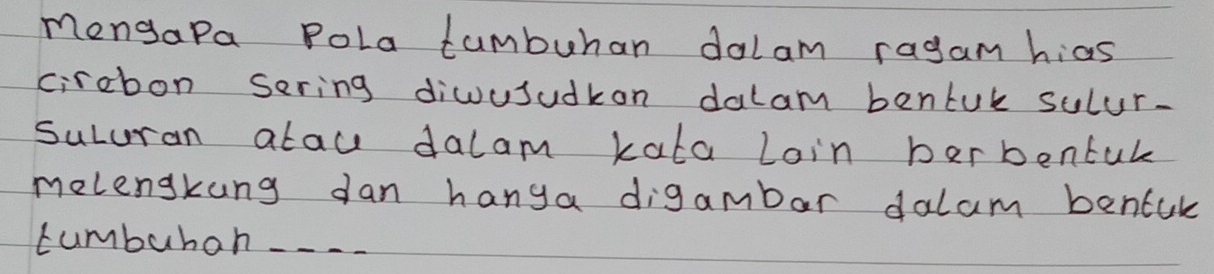 Mengapa Pola tumbuhan dalam ragam hias
cirebon sering diwujudkan dalam bentuk sulur-
suluran atau dalam kata lain berbentuk
melengkung dan hanya digambar dalam bentuk
tumbuhan ----